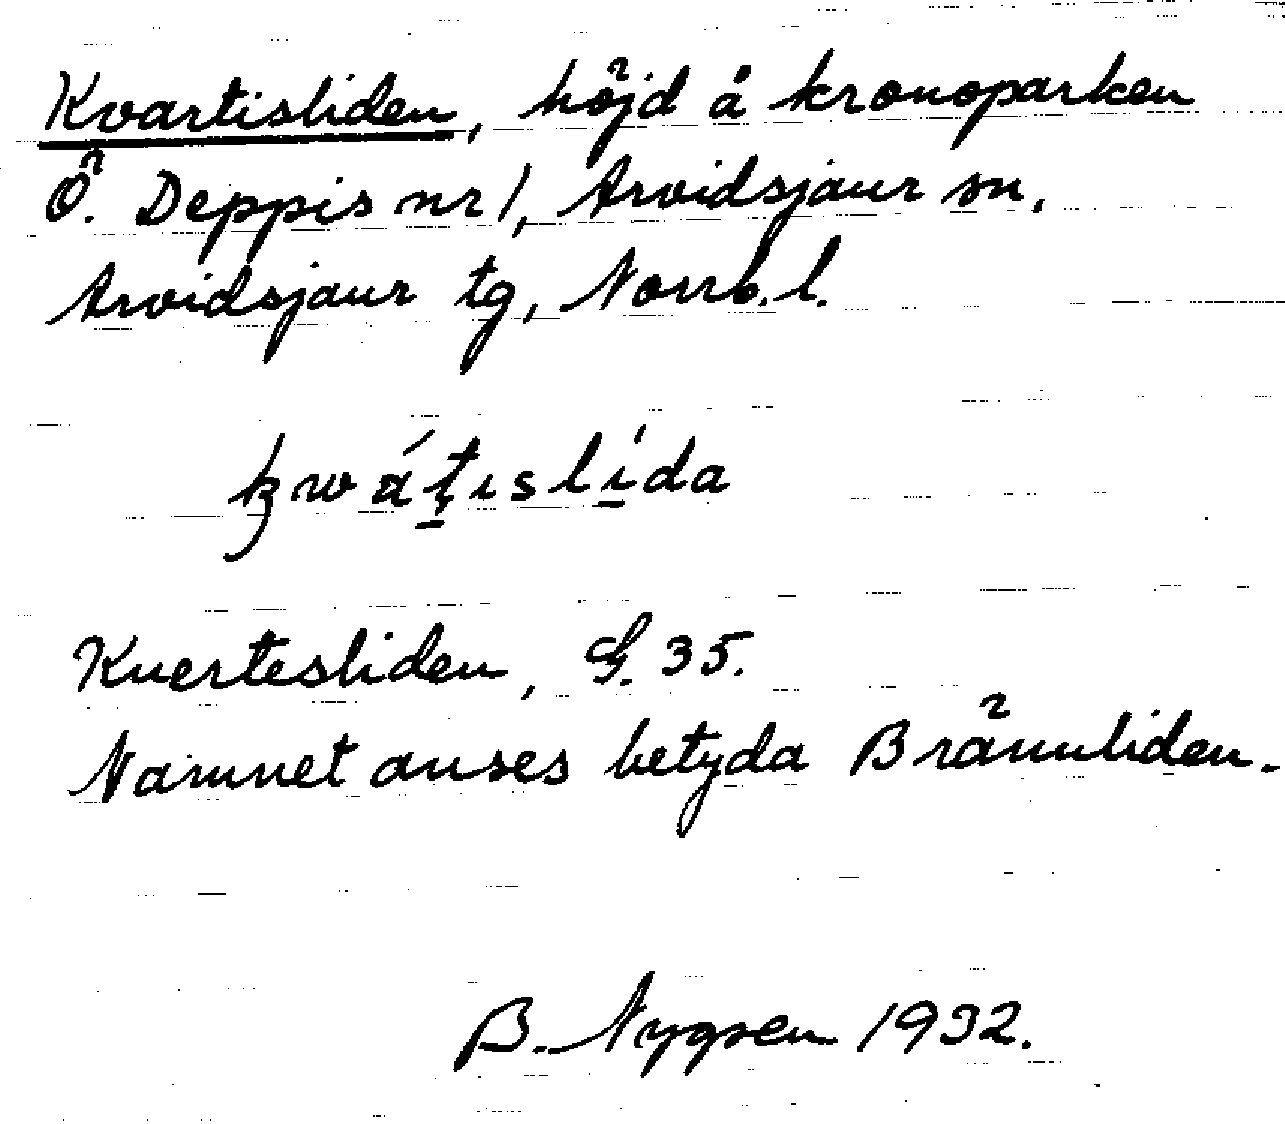 Kvartisliden, höjd å kronoparken
Ö. Deppis nr 1, Arvidsjaur sn,
Arvidsjaur tg, Norrb. l.
kwátıslída
Kuertesliden, G. 35.
Namnet anses betyda Brännliden.
B. Nygren 1932.